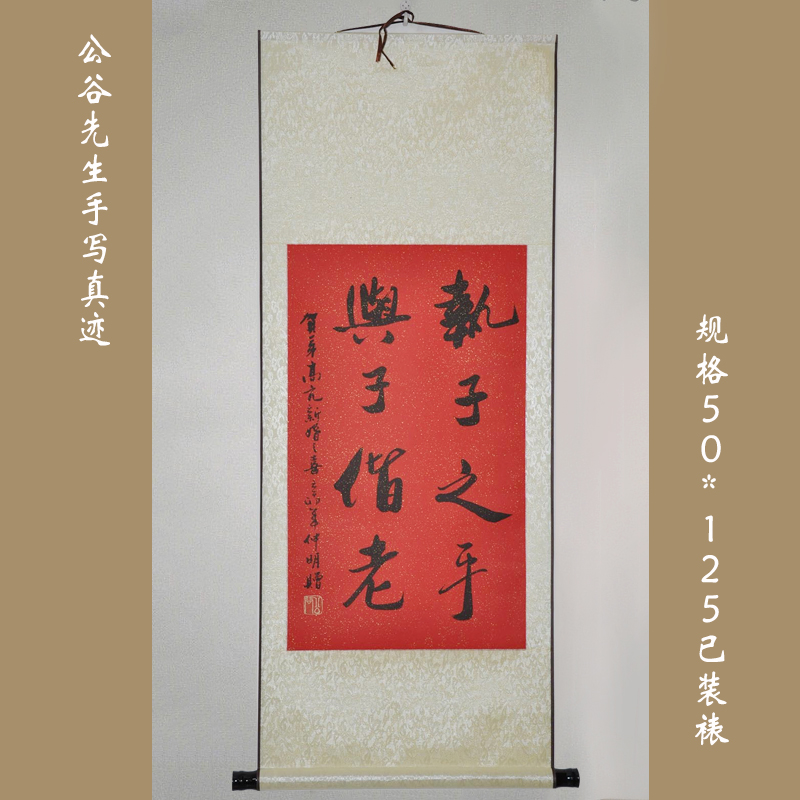 公谷先生手写真迹
執子之手
與子偕老
賀 高 新婚之喜 年仲明贈
规格50*125已装裱